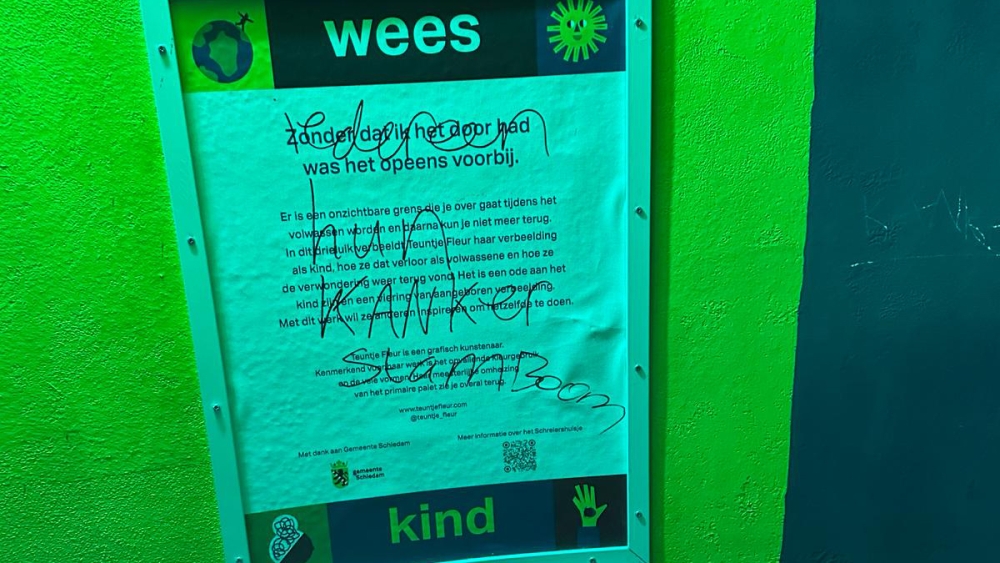 wees
Zonder dat ik het door had
was het opeens voorbij.
Iedereen
Er is een onzichtbare grens die je over gaat tijdens het
volwassen worden en daarna kun je niet meer terug.
In dit drieluik verbeeldt Teuntje Fleur haar verbeelding
als kind, hoe ze dat verloor als volwassene en hoe ze
de verwondering weer terug vond. Het is een ode aan het
kind zijn en een viering van aangeboren verbeelding.
Met dit werk wil ze anderen inspireren om hetzelfde te doen.
hun
KANKer
Teuntje Fleur is een grafisch kunstenaar.
Kenmerkend voor haar werk is het opvallende kleurgebruik
en de vele vormen. Haar meesterlijke omheizing
van het primaire palet zie je overal terug.
Stam Boom
www.teuntjefleur.com
@teuntje_fleur
Met dank aan Gemeente Schiedam
Meer informatie over het Schreiershuisje
gemeente
Schiedam
kind